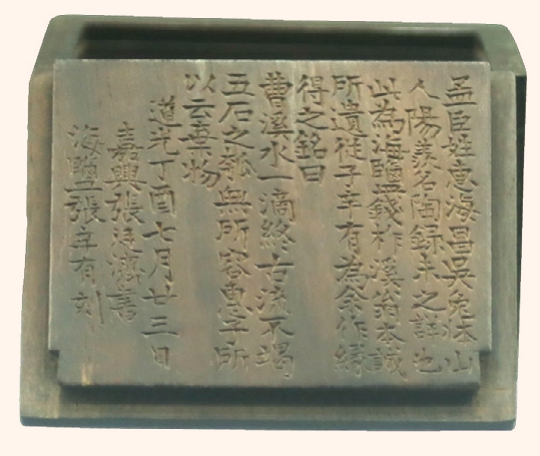 孟臣姓惠海昌吳兔牀山
人陽羨名陶録未之詳也
此為海鹽錢柞溪翁本誠
所遺從子辛有為余作緣
得之銘曰
曹溪水一滴終古流不竭
五石之瓠無所容惠子所
以云棄物
道光丁酉七月廿三日
嘉興張廷濟書
海鹽張辛有刻